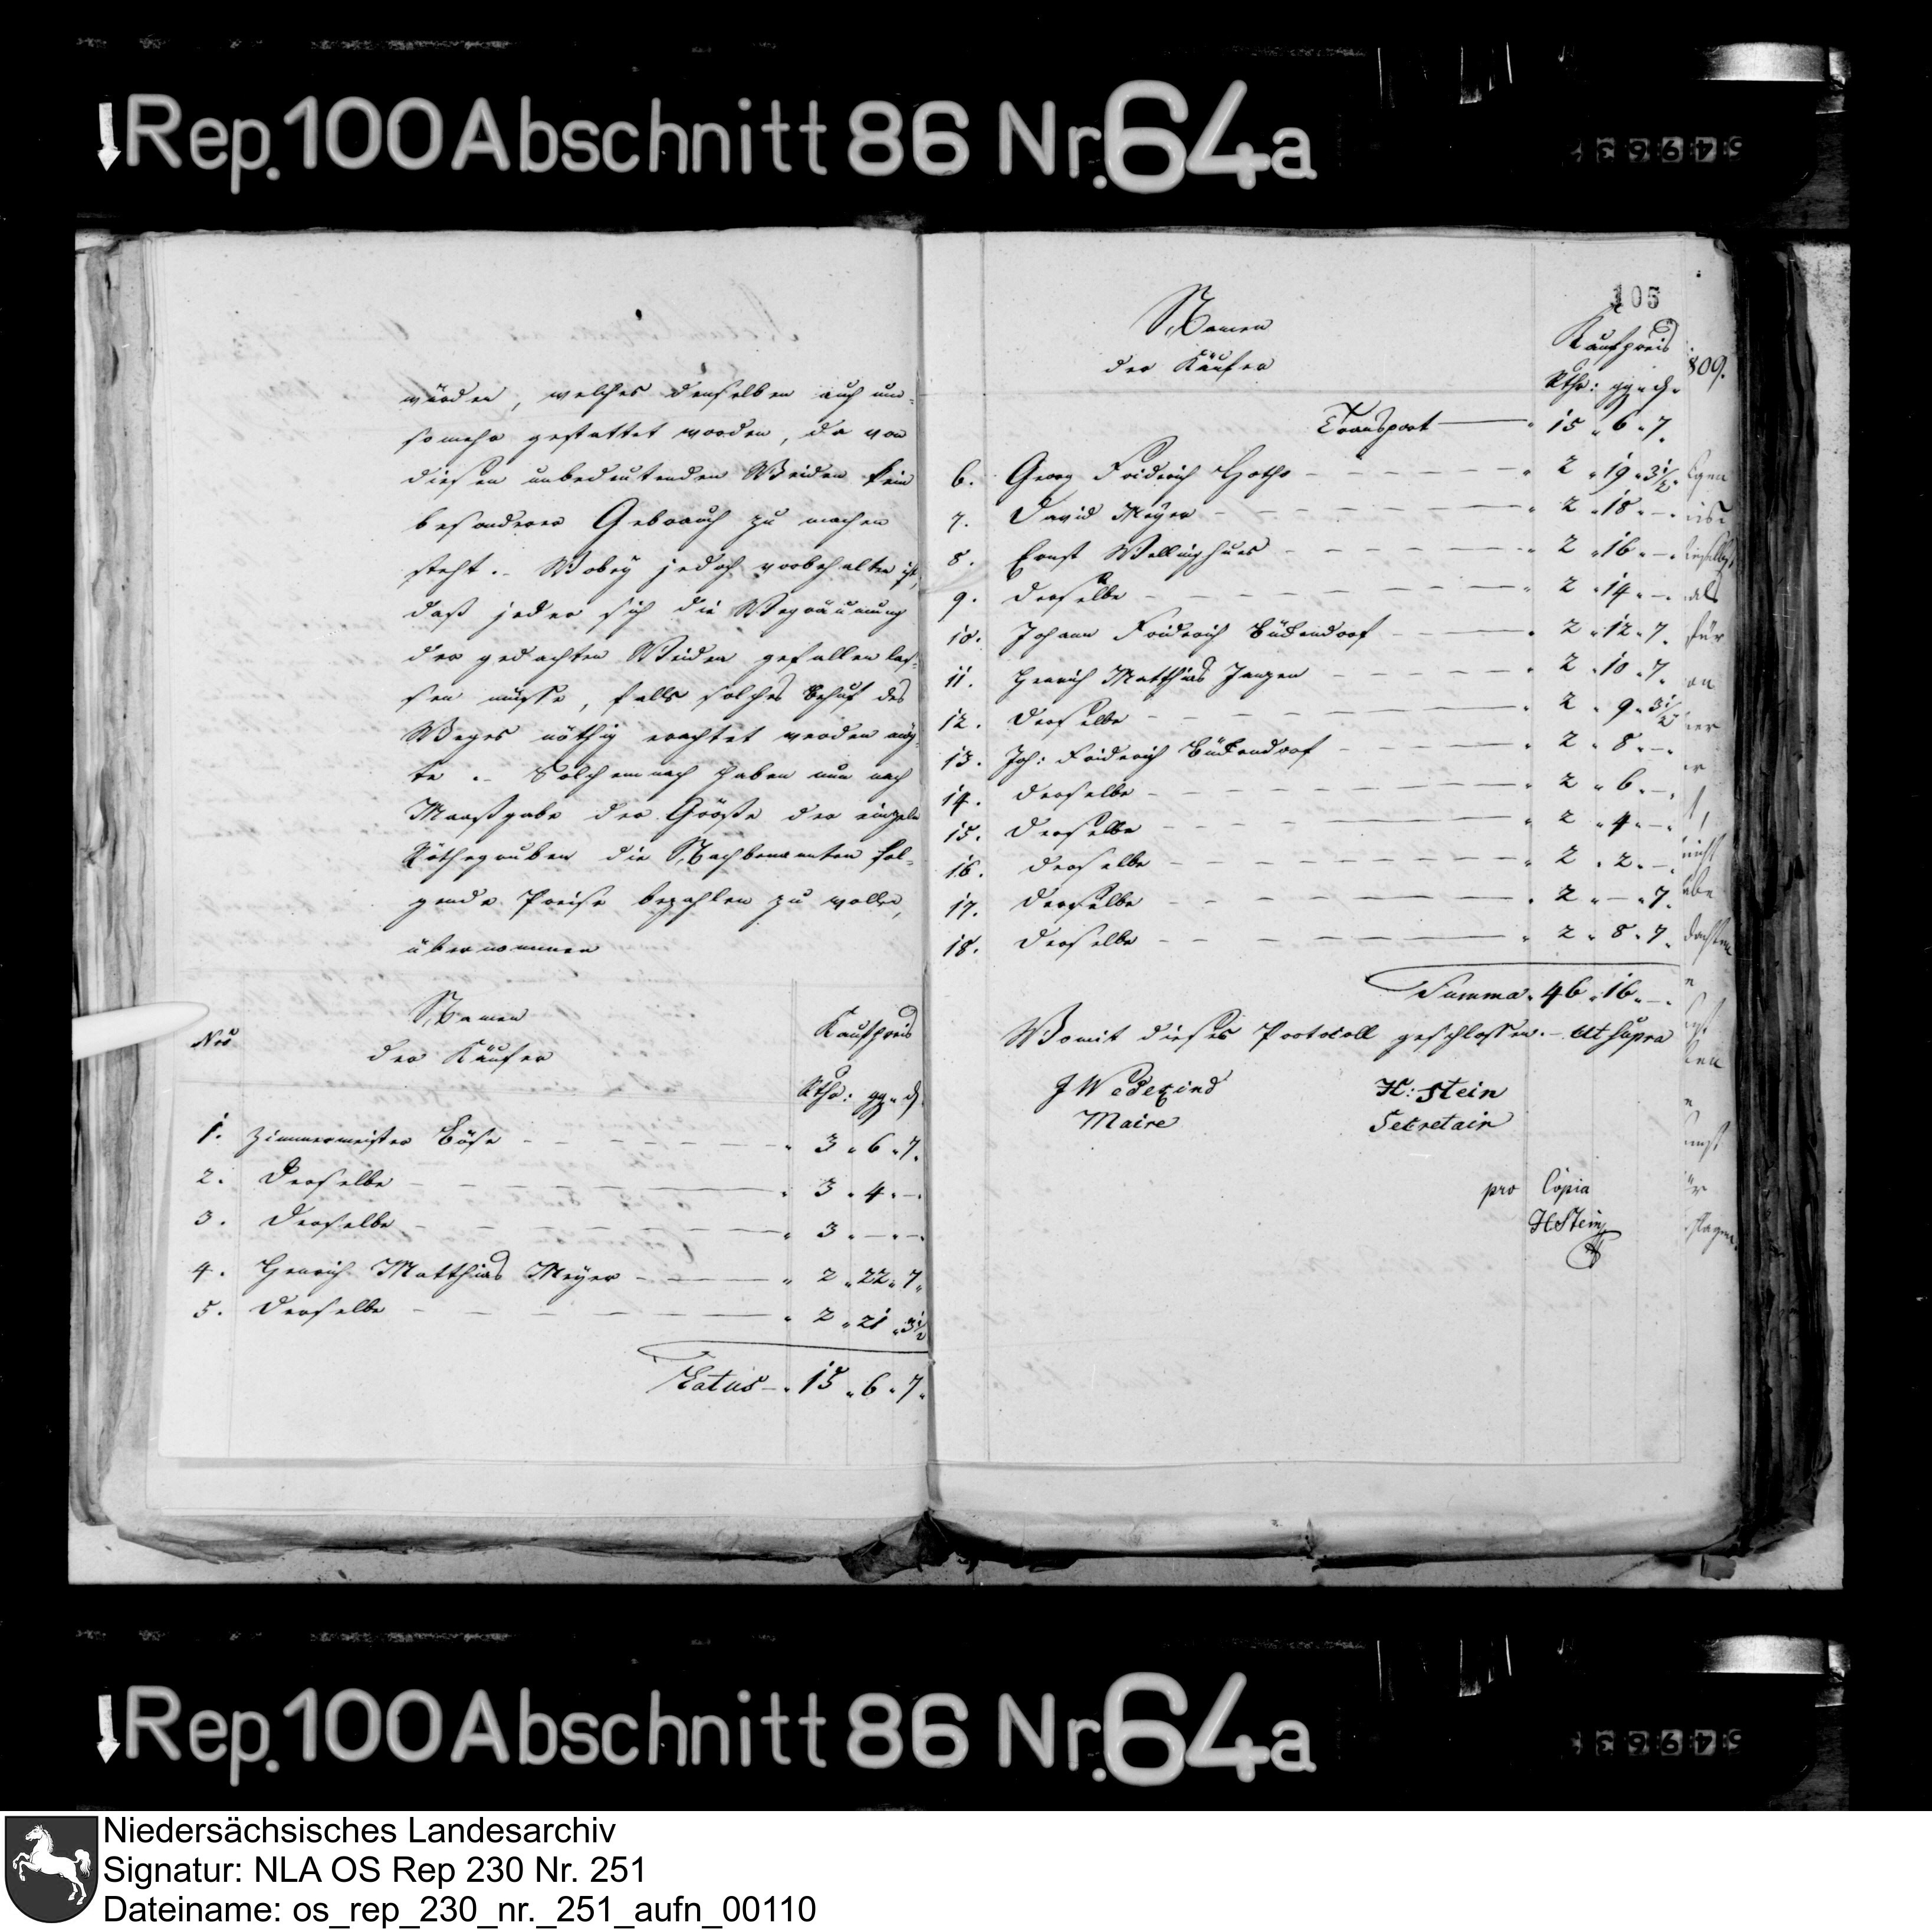 Rep. 100 Abschnitt 86 Nr. 64a
würden, welches denselben auch um-
somehr gestattet worden, da von
diesen unbedeutenden Weiden kein
besonderer Gebrauch zu machen
steht. Wobey jedoch vorbehalten ist,
daß jeder sich die Wegräumung
der gedachten Weiden gefallen las-
sen müsse, falls solches Behuf des
Weges nöthig erachtet werden mög-
te. Solchemnach haben nun nach
Maaßgabe der Größe der einzeln
Röthegruben die Nachbenannten fol-
gende Preise bezahlen zu wollen,
übernommen
Nro Namen der Käufer Kaufpreis
Rthr: ggr. d.
1. Zimmermeister Böse 3 " 6 " 7.
2. Derselbe 3 " 4 " –.
3. Derselbe 3 " – " –.
4. Henrich Matthias Meyer 2 " 22 " 7 "
5. Derselbe 2 " 21 " 3 1/2
Latus 15 " 6 " 7 "
105
Namen der Käufer Kaufpreis
Rthr: ggr. d.
Transport 15 " 6 " 7.
6. Georg Friderich Hothe 2 " 19 " 3 1/2
7. David Meyer 2 " 18 " –.
8. Ernst Wellinghues 2 " 16 " –.
9. Derselbe 2 " 14 " –.
10. Johann Friderich Bückendorf 2 " 12 " 7.
11. Henrich Matthias Janzen 2 " 10 " 7.
12. Derselbe 2 " 9 " 3 1/2
13. Joh: Friderich Bückendorf 2 " 8 " –.
14. Derselbe 2 " 6 " –.
15. Derselbe 2 " 4 " –.
16. Derselbe 2 " 2 " –.
17. Derselbe 2 " – " 7.
18. Derselbe 2 " 8 " 7.
Summa " 46 " 16 " –.
Womit dieses Protocoll geschlossen. – Ut supra
J Wedekind H: Stein
Maire Secretair
pro Copia
HStein
809.
als
für
an
er
nicht
Rep. 100 Abschnitt 86 Nr. 64a
Niedersächsisches Landesarchiv
Signatur: NLA OS Rep 230 Nr. 251
Dateiname: os_rep_230_nr._251_aufn_00110